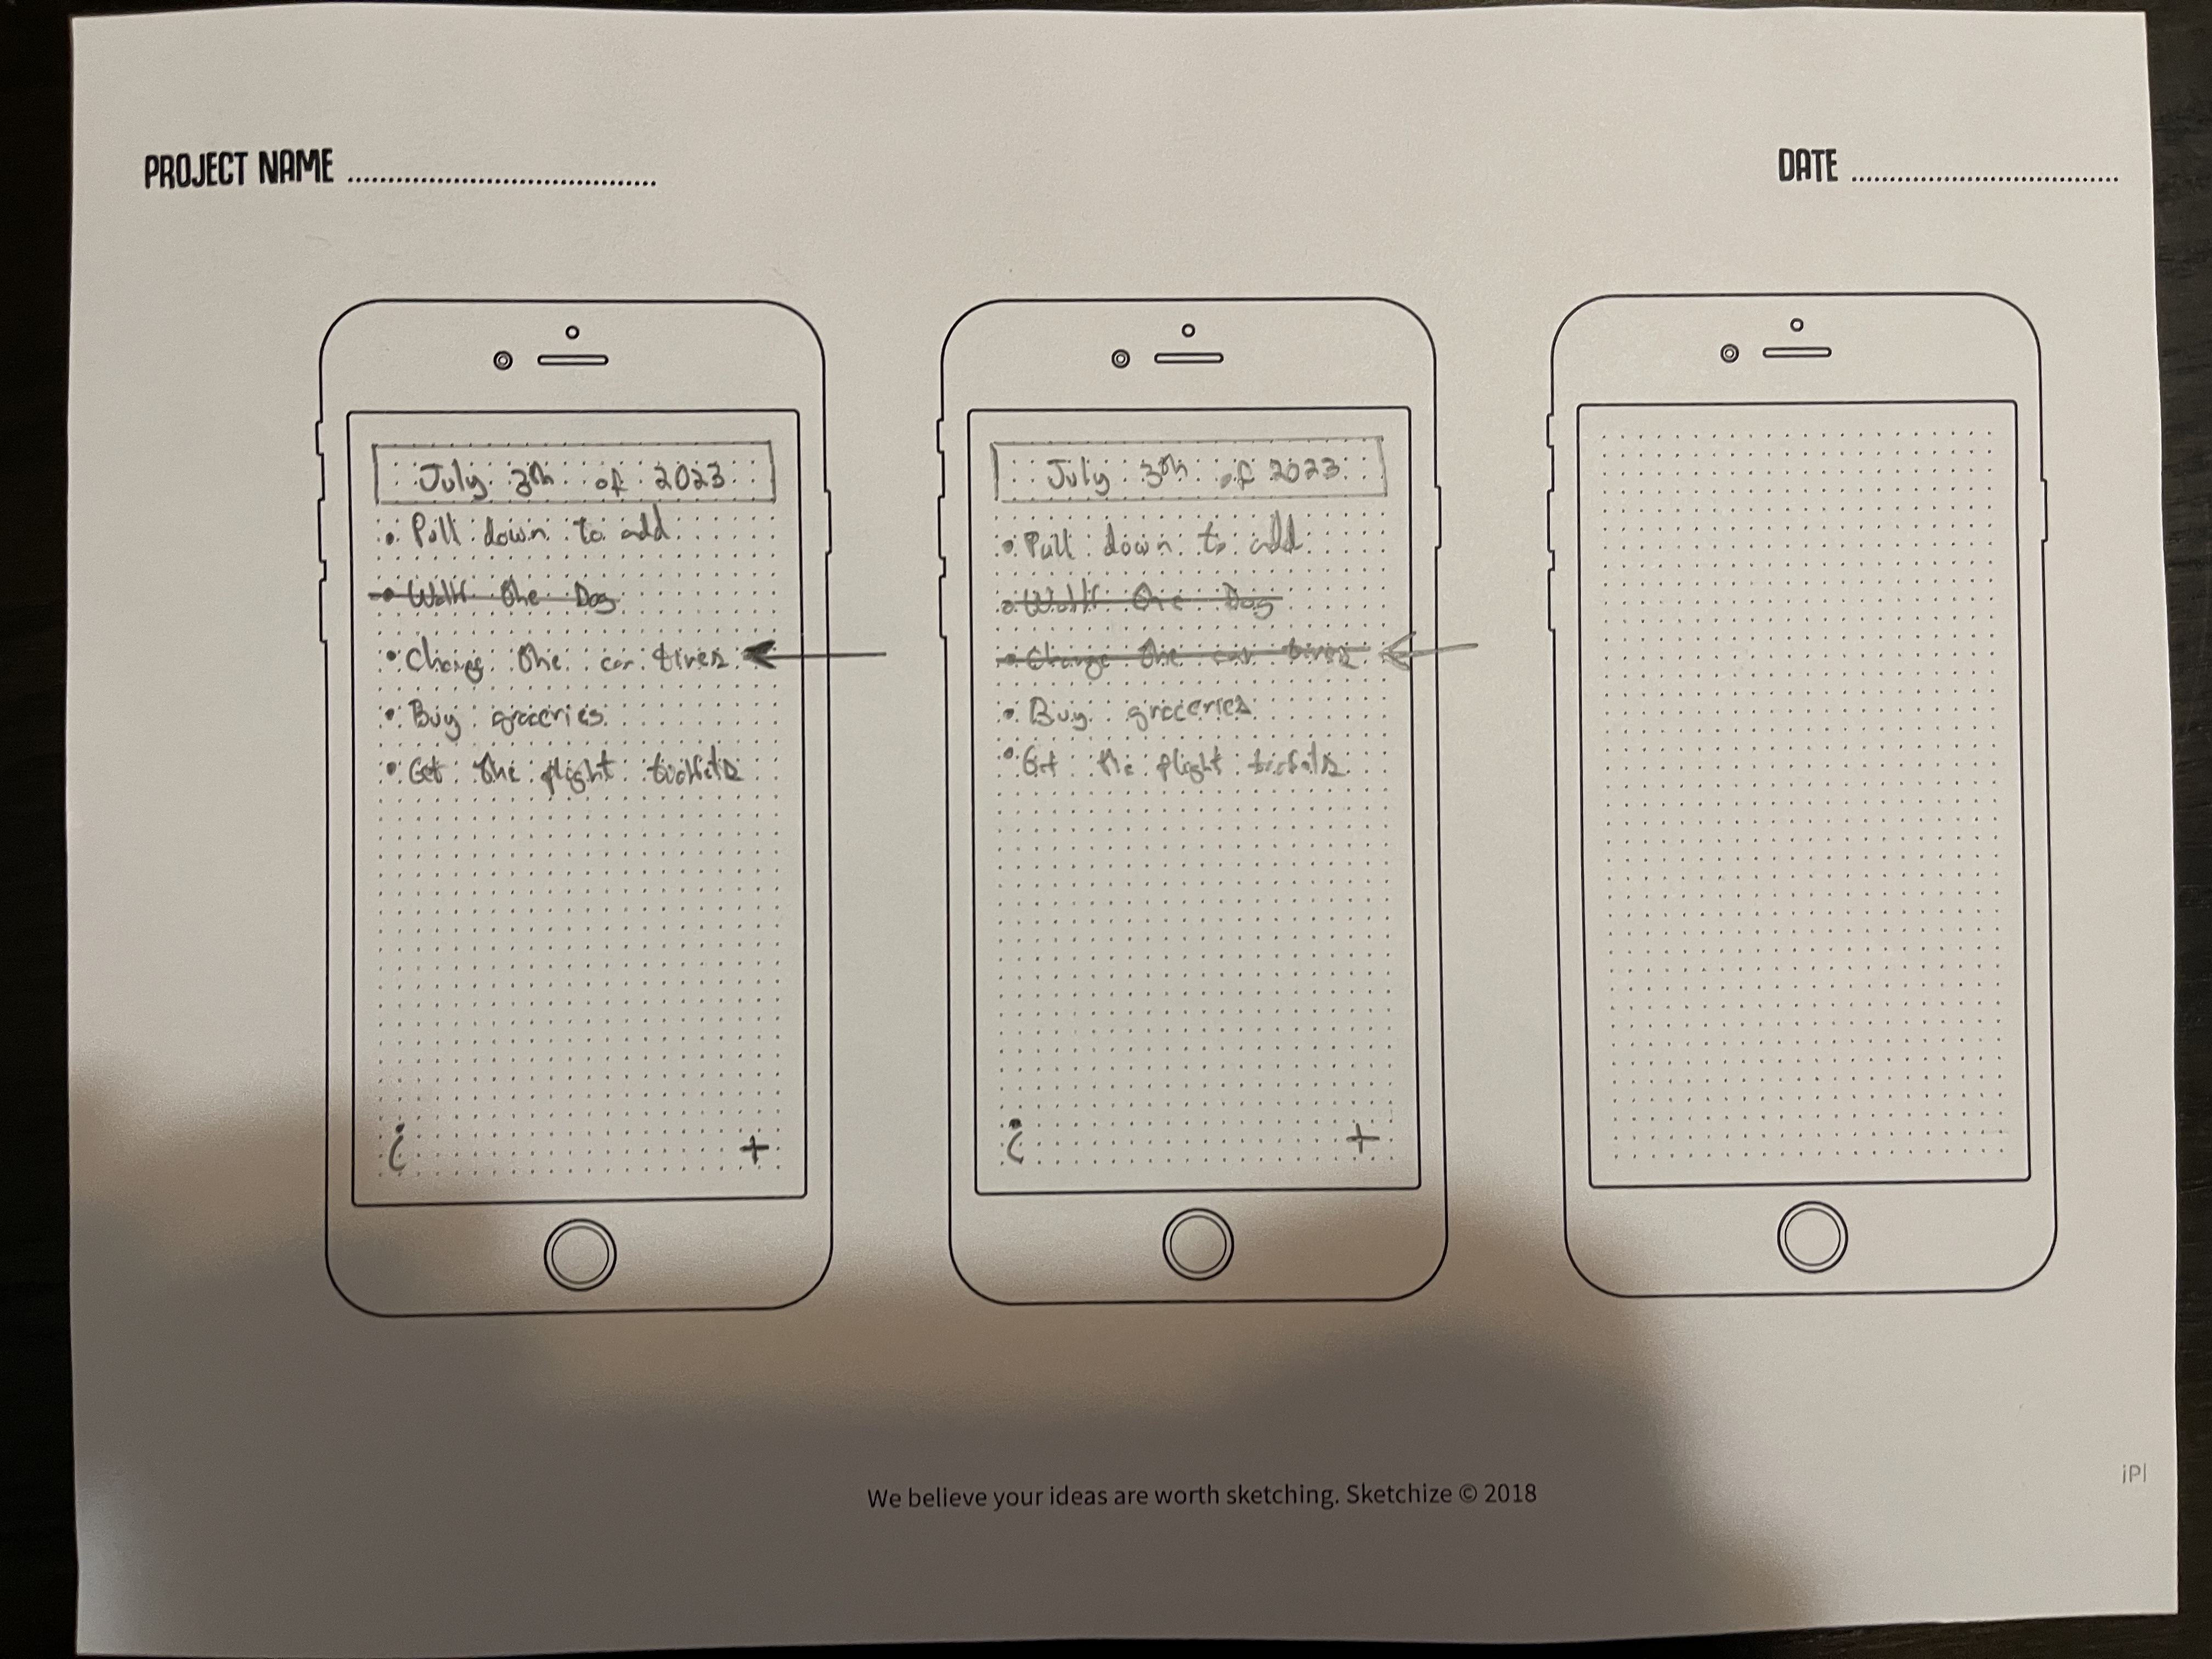 PROJECT NAME
DATE
July 30th of 2023
• Pull down to add
• Walk the Dog
• Change the car tires
• Buy groceries
• Get the flight tickets
i
+
July 30th of 2023
• Pull down to add
• Walk the Dog
• Change the car tires
• Buy groceries
• Get the flight tickets
i
+
We believe your ideas are worth sketching. Sketchize © 2018